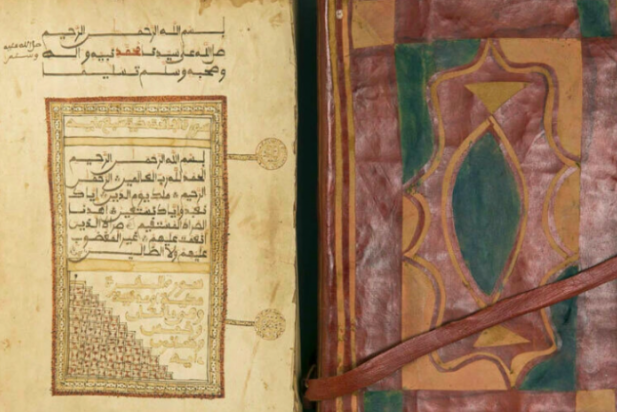 بسم الله الرحمن الرحيم
صلى الله على سيدنا محمد نبيه وءاله
وصحبه وسلم تسليما
صلى الله عليه
وسلم
سورة
بسم الله الرحمن الرحيم
الحمد لله رب العالمين الرحمن
الرحيم ملك يوم الدين إياك
نعبد وإياك نستعين اهدنا
الصراط المستقيم صراط الذين
أنعمت عليهم غير المغضوب
عليهم ولا الضالين
سورة البقرة
مدنية
وخمس
ءاية